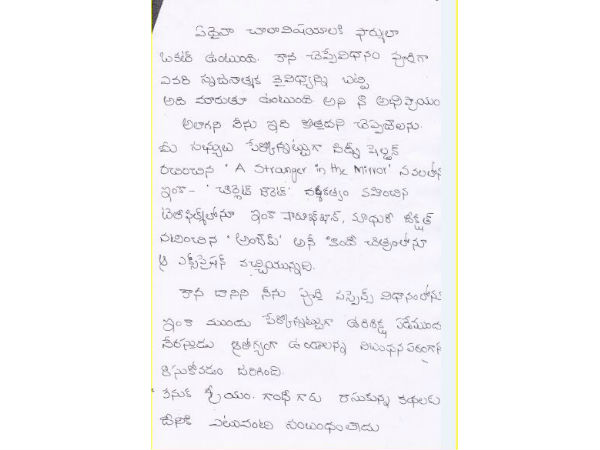 ఏదైనా చాలావిషయాలకి ఫార్ములా
ఒకటే ఉంటుంది. కాని చెప్పేవిధానం పూర్తిగా
ఎవరి సృజనాత్మక వైవిధ్యాన్ని బట్టి
అది మారుతూ ఉంటుంది అని నా అభిప్రాయం
అలాగని నేను ఇది కొత్తదని చెప్పజాలను.
మీ సభ్యులు పేర్కొన్నట్టుగా సిడ్నీ షెల్డన్
రచించిన 'A Stranger in the Mirror' నవలలోను
ఇంకా - దర్శకత్వం వహించిన
టెలీఫిల్మ్‌లోనూ ఇంకా షారూఖ్‌ఖాన్, మాధురీ దీక్షిత్
నటించిన 'అంజామ్' అనే హిందీ చిత్రంలోనూ
ఈ ఎక్స్‌ప్రెషన్ వచ్చియున్నది.
కాని దానిని నేను పూర్తి సస్పెన్స్ విధానంలోను
ఇంకా ముందు పేర్కొన్నట్టుగా ఉరిశిక్ష పడేముందు
నేరస్తుడు ఆరోగ్యంగా ఉండాలన్న నిబంధన పరంగాను
తీసుకోవడం జరిగింది.
కనుక శ్రీయం. గాంధీ గారు రాసుకున్న కథలకు
దీనికి ఎటువంటి సంబంధంలేదు